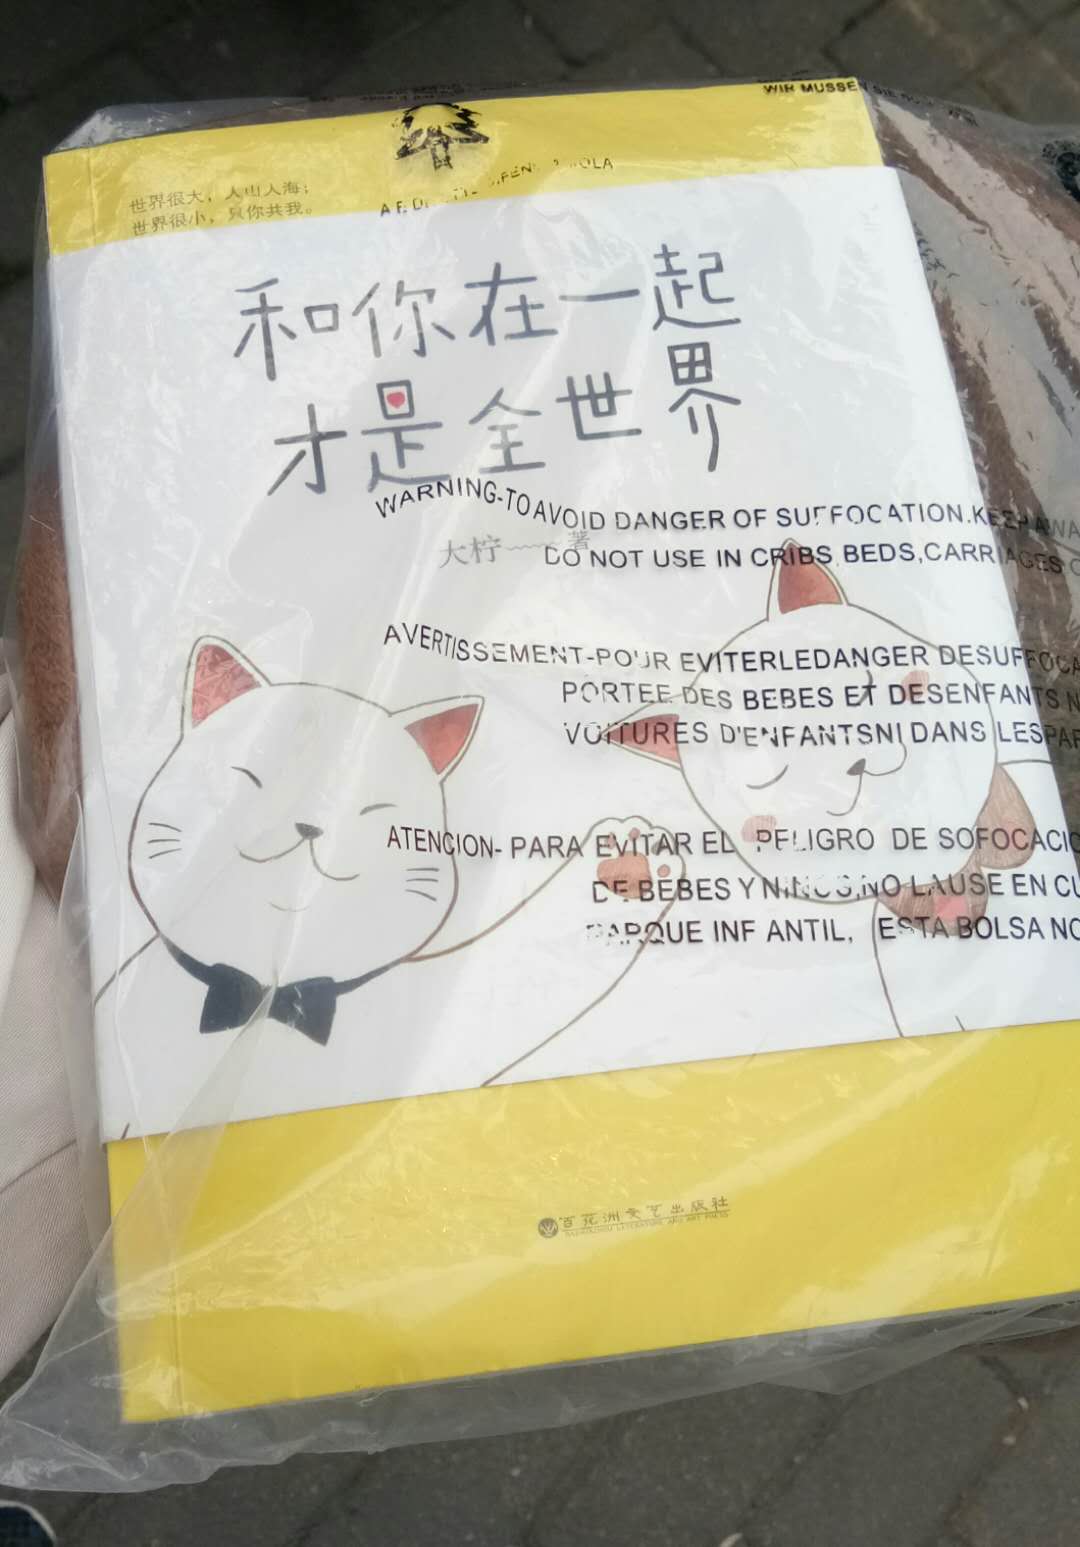 WIR MUSSEN SIE
世界很大，人山人海；
世界很小，只你共我。
和你在一起
才是全世界
大柠 著
WARNING-TO AVOID DANGER OF SUFFOCATION.KEEP AWA
DO NOT USE IN CRIBS BEDS,CARRIAGES
AVERTISSEMENT-POUR EVITERLEDANGER DESUFFOCA
PORTEE DES BEBES ET DESENFANTS N
VOITURES D'ENFANTSNI DANS LESPAR
ATENCION- PARA EVITAR EL PELIGRO DE SOFOCACIO
DE BEBES Y NINOS,NO LAUSE EN CU
PARQUE INF ANTIL, ESTA BOLSA NO
百花洲文艺出版社
BAIHUAZHOU LITERATURE AND ART PRESS